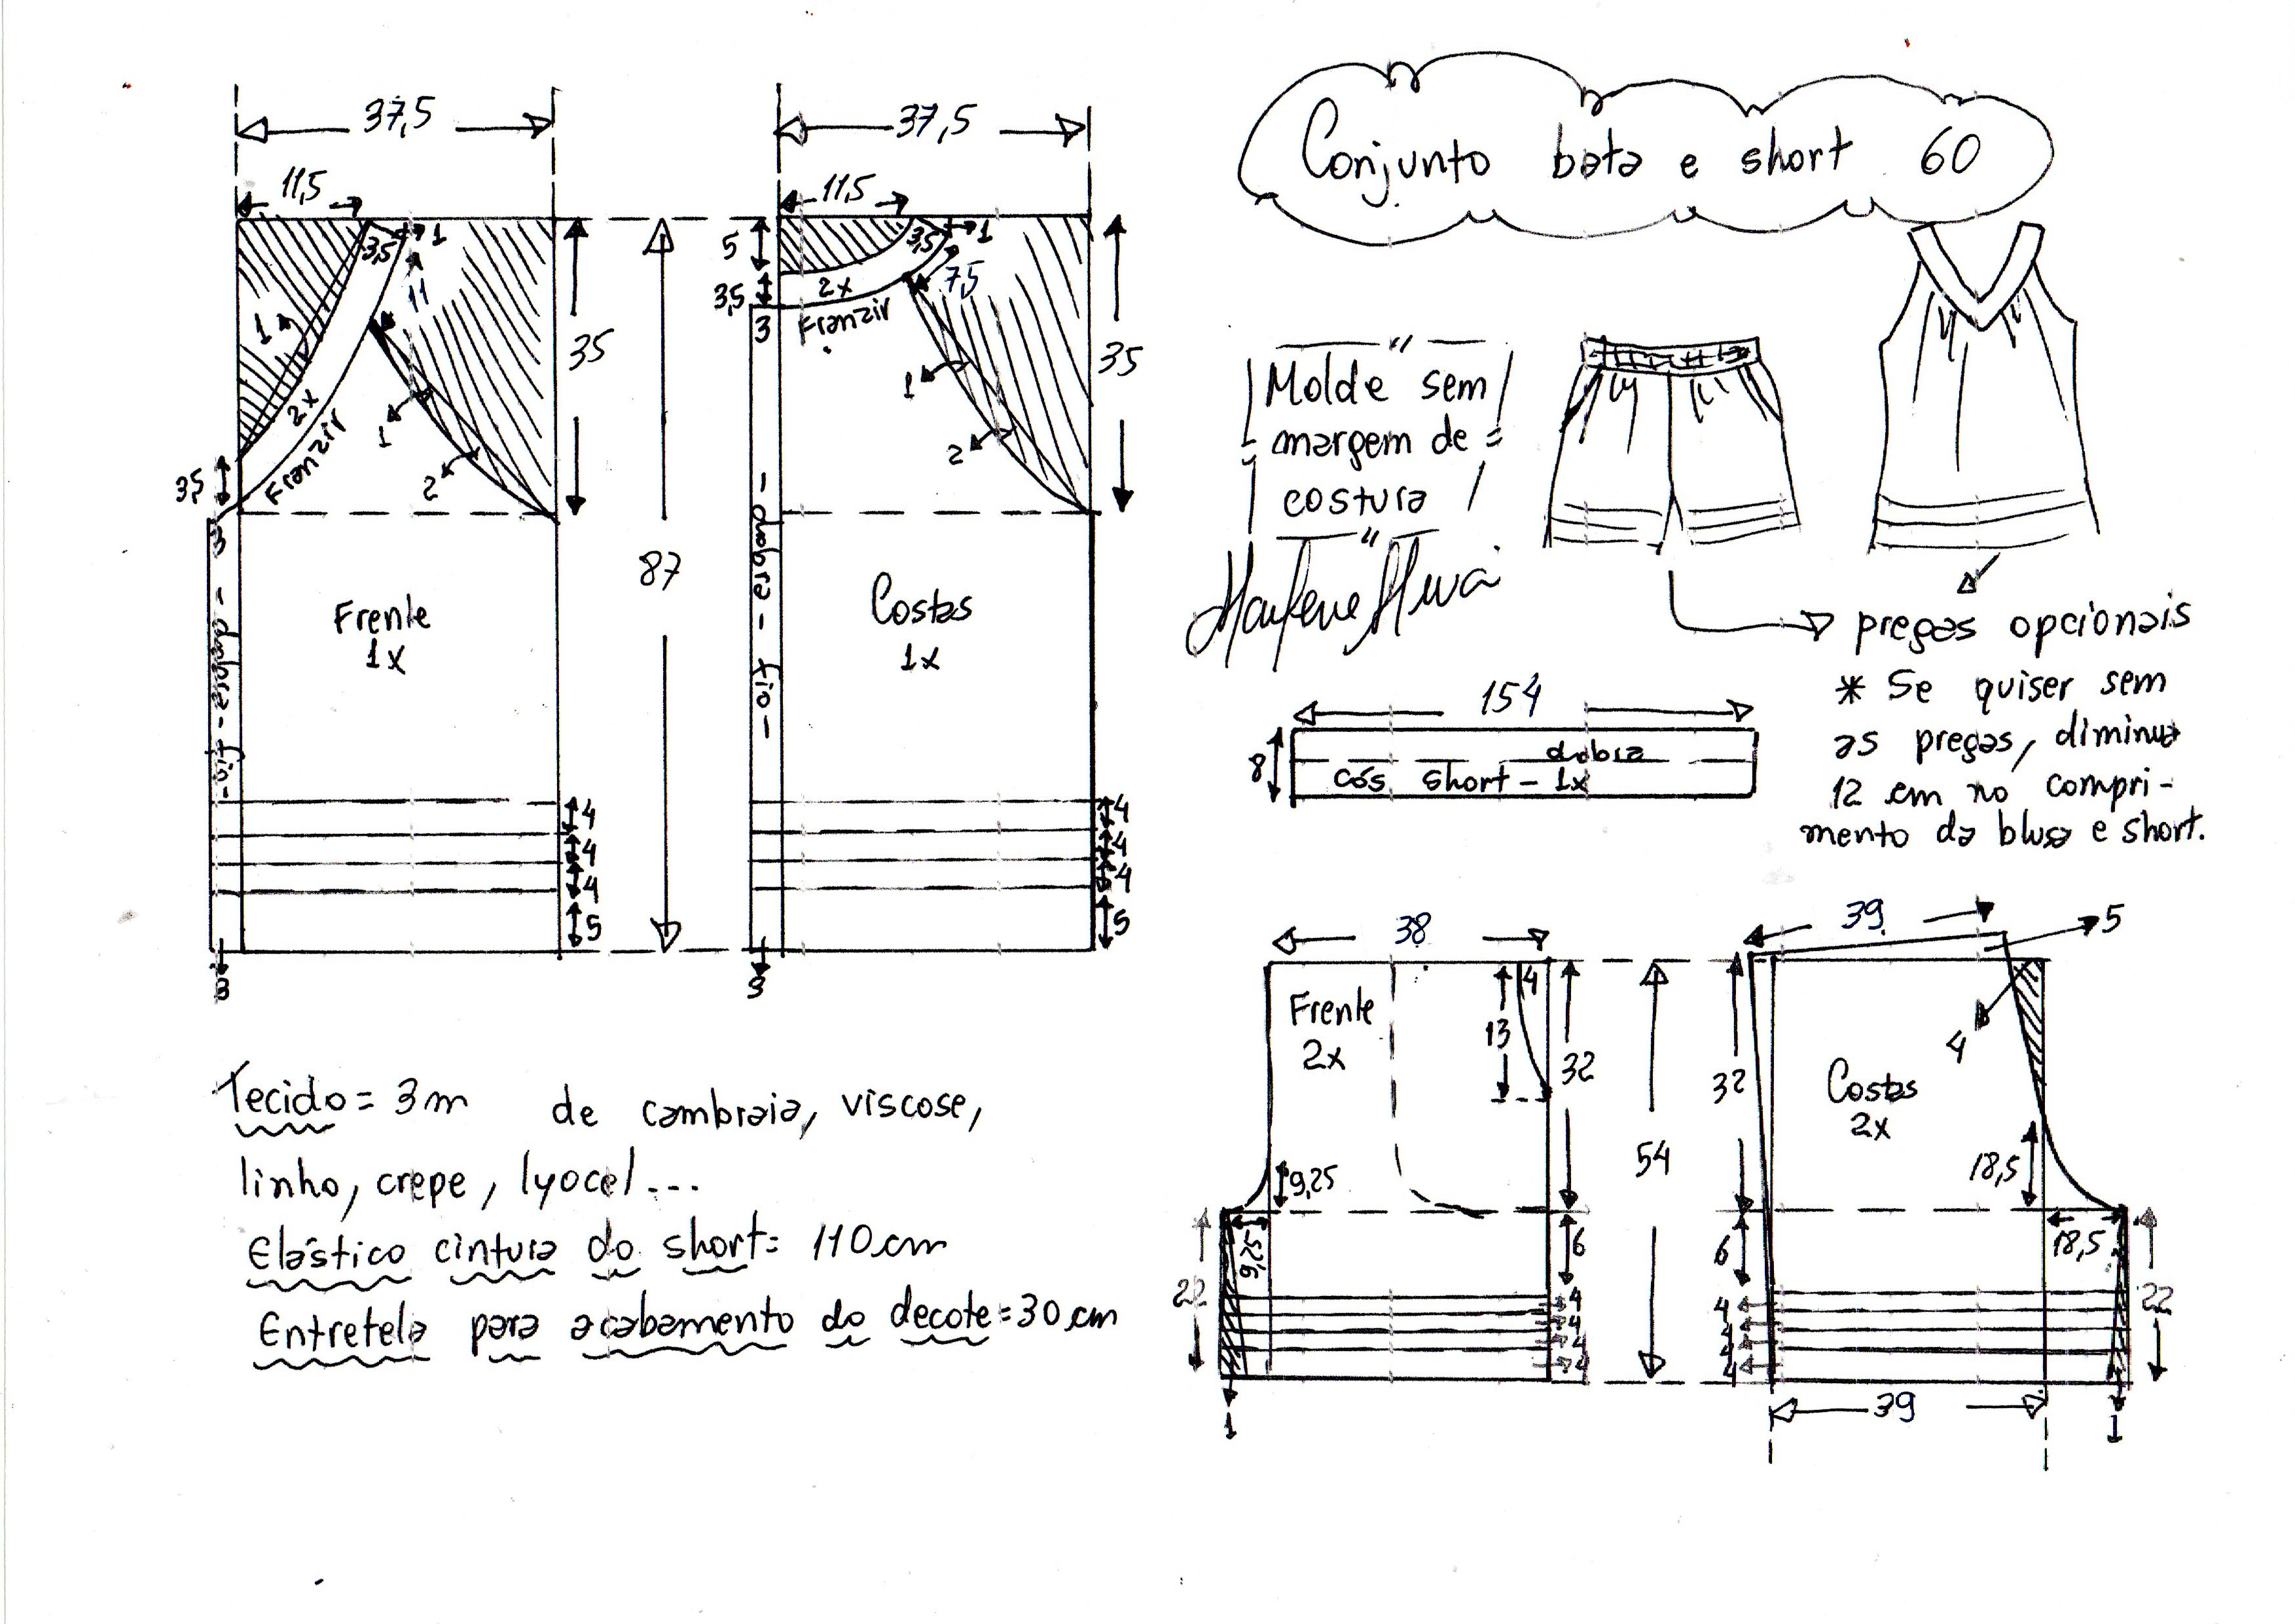 Conjunto bata e short 60
37,5
11,5
3,5
1
11
1
2x
Franzir
1
2
35
3,5
3
dobra - fio -
Frente
1x
4
4
4
5
3
87
37,5
11,5
5
3,5
1
7,5
3,5
2x
Franzir
3
1
2
35
- dobra - fio -
Costas
1x
4
4
4
5
3
"
Molde sem
margem de
costura
"
pregas opcionais
* Se quiser sem
as pregas, diminua
12 cm no compri-
mento da blusa e short.
154
8
dobra
cós short - 1x
38
Frente
2x
4
13
32
9,25
9,25
22
6
4
4
4
4
1
54
39
5
4
32
Costas
2x
18,5
18,5
6
4
4
4
4
22
39
1
Tecido = 3m de cambraia, viscose,
linho, crepe, lyocel...
Elástico cintura do short = 110 cm
Entretela para acabamento do decote = 30 cm